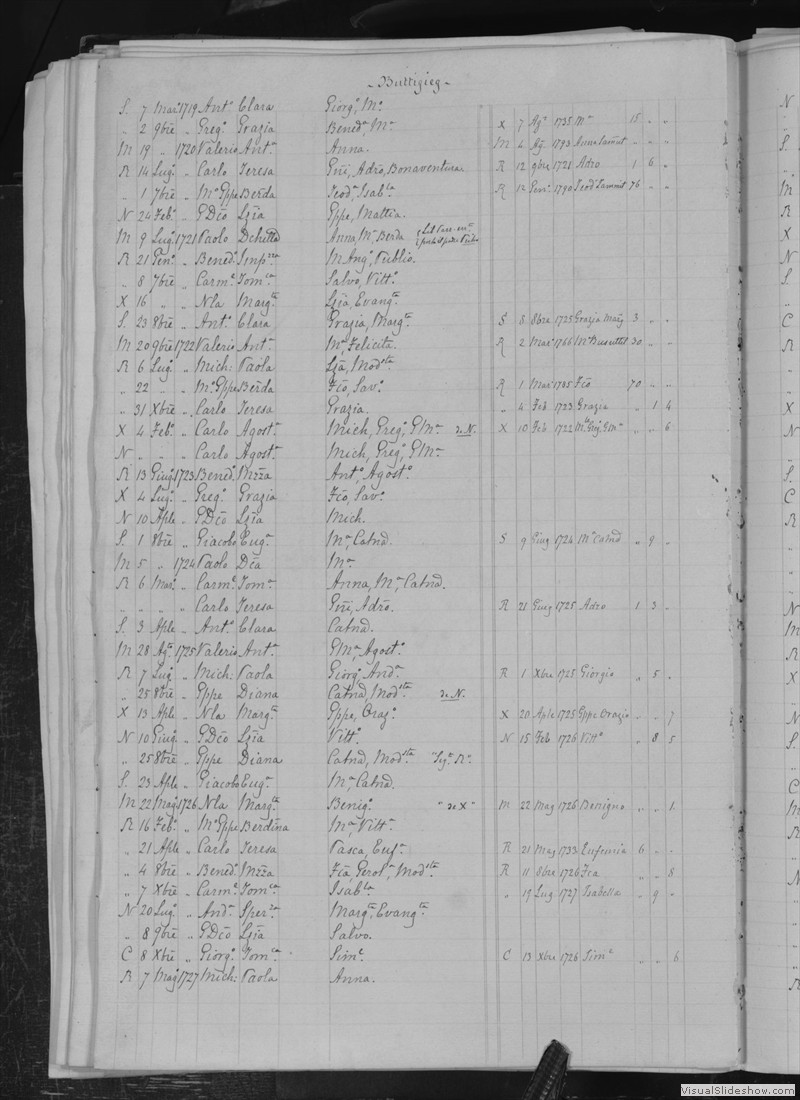 - Buttigieg -
S. 7 Mar: 1719 Ant° Clara Giorg°, M°
„ 2 9bre „ Greg° Grazia Bened°, Mª X 7 Ag° 1735 Mª 15 „ „
M 19 „ 1720 Valerio Antª Anna. M 4 Ag° 1793 Anna Tammt „ „ „
R 14 Lug° „ Carlo Teresa Gñi, Adrõ, Bonaventura R 12 9bre 1721 Adrõ 1 6 „
„ 1 7bre „ M° Gppe Berda Teodª, Isabla R 12 Genr° 1790 Teodª Tammit 76 „ „
N 24 Feb° „ GDcõ Lzia Gppe, Mattia.
M 9 Lug° 1721 Paolo Dchetta Anna, Mª, Berda
R 21 Gen° „ Bened° Impzza M Ang°, Publio.
„ 8 7bre „ Carm° Tomca Salvo, Vittª
X 16 „ „ Nla Margta Lzia, Evangta
S. 23 8bre „ Ant° Clara Grazia, Margta S 8 8bre 1725 Grazia Marg 3 „ „
M 20 9bre 1722 Valerio Antª Mª, Felicita. R 2 Mar° 1766 Mª Busuttil 30 „ „
R 6 Lug° „ Mich: Paola Lzia, Modsta
„ 22 - „ M° Gppe Berda Fcõ, Sav° R 1 Mar° 1735 Fcõ 70 „ „
„ 31 Xbre „ Carlo Teresa Grazia. „ 4 Feb 1723 Grazia „ 1 4
X 4 Feb° „ Carlo Agostª Mich, Greg°, GMª de N. X 10 Feb 1722 GMª „ „ 6
N „ „ „ Carlo Agostª Mich, Greg°, GMª
R 13 Giug° 1723 Bened° Mzza Ant°, Agost°
X 4 Lug° „ Greg° Grazia Fcõ, Sav°
N 10 Aple „ GDcõ Lzia Mich.
S. 1 8bre „ Giacobo Eugª Mª, Catnã. S 9 Giug 1724 Mª Catnã „ 9 „
M 5 „ 1724 Paolo Dcã Mª
R 6 Mar° „ Carm° Tomª Anna, Mª, Catnã.
„ „ „ „ Carlo Teresa Gñi, Adrõ. R 21 Giug 1725 Adrõ 1 3 „
S. 3 Aple „ Ant° Clara Catnã.
M 28 Ag° 1725 Valerio Antª GMª, Agost°
R 7 Lug° „ Mich: Paola Giorg°, Andª R 1 Xbre 1725 Giorgio „ 5 „
„ 25 8bre „ Gppe Diana Catnã, Modsta de N.
X 13 Aple „ Nla Margta Gppe, Oraz° X 20 Aple 1725 Gppe Orazio „ „ 7
N 10 Giug° „ GDcõ Lzia Vitt° N 15 Feb 1726 Vitt° „ 8 5
„ 25 8bre „ Gppe Diana Catnã, Modsta
S. 23 Aple „ Giacobo Eugª Mª, Catnã.
M 22 Mag 1726 Nla Margta Benig° „ de X „ M 22 Mag 1726 Benigno „ „ 1.
R 16 Feb° „ M° Gppe Berdina Mª, Vittª
„ 21 Aple „ Carlo Teresa Pasca, Eufª R 21 Mag 1733 Eufemia 6 „ „
„ 4 8bre „ Bened° Mzza Fcã, Gerolª, Modsta R 11 8bre 1726 Fca „ „ 8
„ 7 Xbre „ Carm° Tomca Isabla „ 19 Lug 1727 Isabella „ 9 „
N 20 Lug° „ And° Sperza Margta, Evangta
„ 8 9bre „ GDcõ Lzia Salvo.
C 8 Xbre „ Giorg° Tomca Sime C 13 Xbre 1726 Sime „ „ 6
R 7 Mag° 1727 Mich: Paola Anna.
VisualSlideshow.com